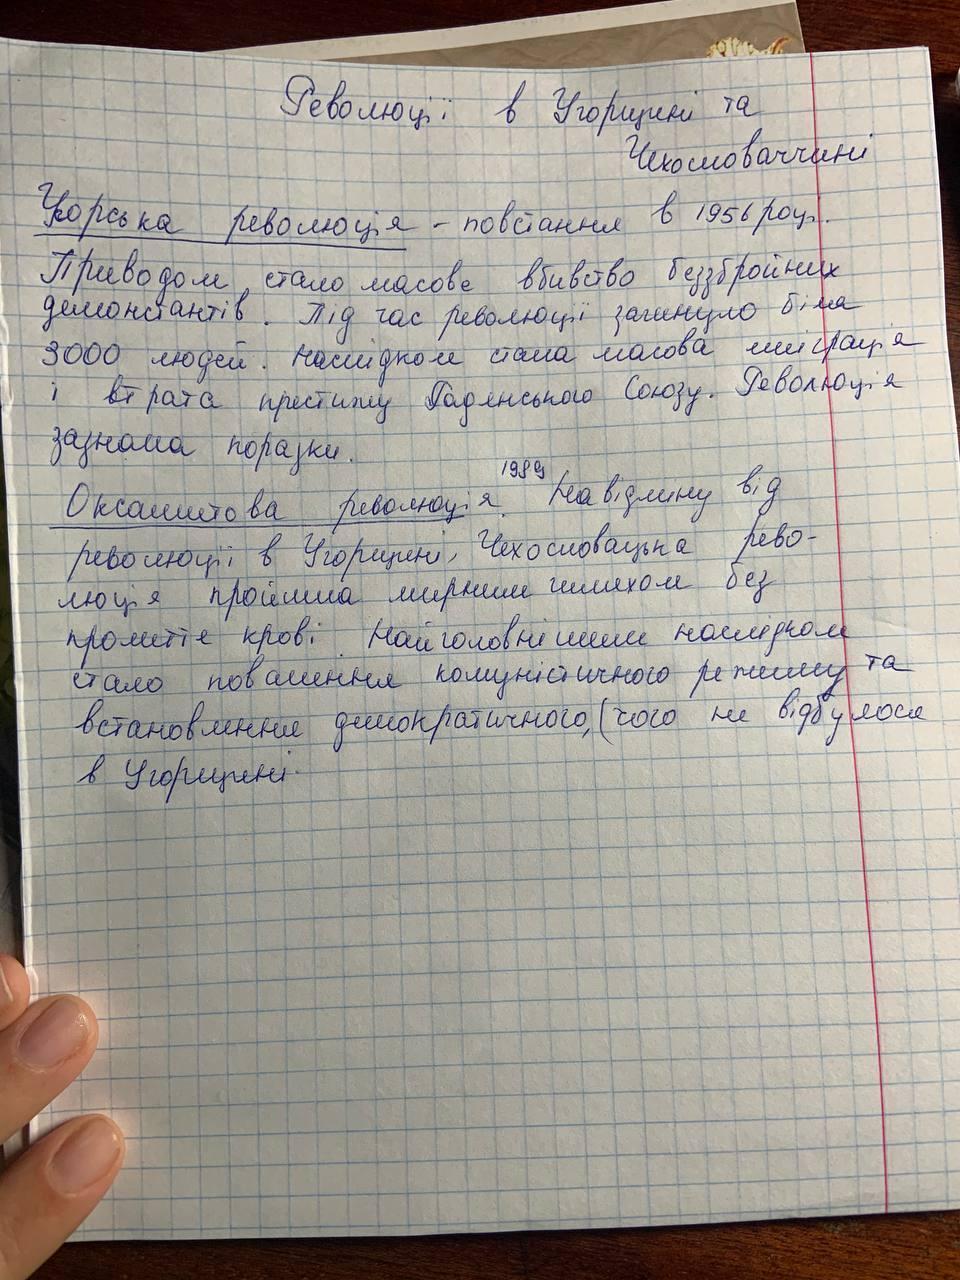 Революції в Угорщині та
Чехословаччині
Угорська революція - повстання в 1956 році.
Приводом стало масове вбивство беззбройних
демонстантів. Під час революції загинуло біля
3000 людей. Наслідком стала масова міграція
і втрата престижу Радянського Союзу. Революція
зазнала поразки.
Оксамитова революція 1989. На відміну від
революції в Угорщині, Чехословацька рево-
люція пройшла мирним шляхом без
пролиття крові. Найголовнішим наслідком
стало повалення комуністичного режиму та
встановлення демократичного, (чого не відбулося
в Угорщині.